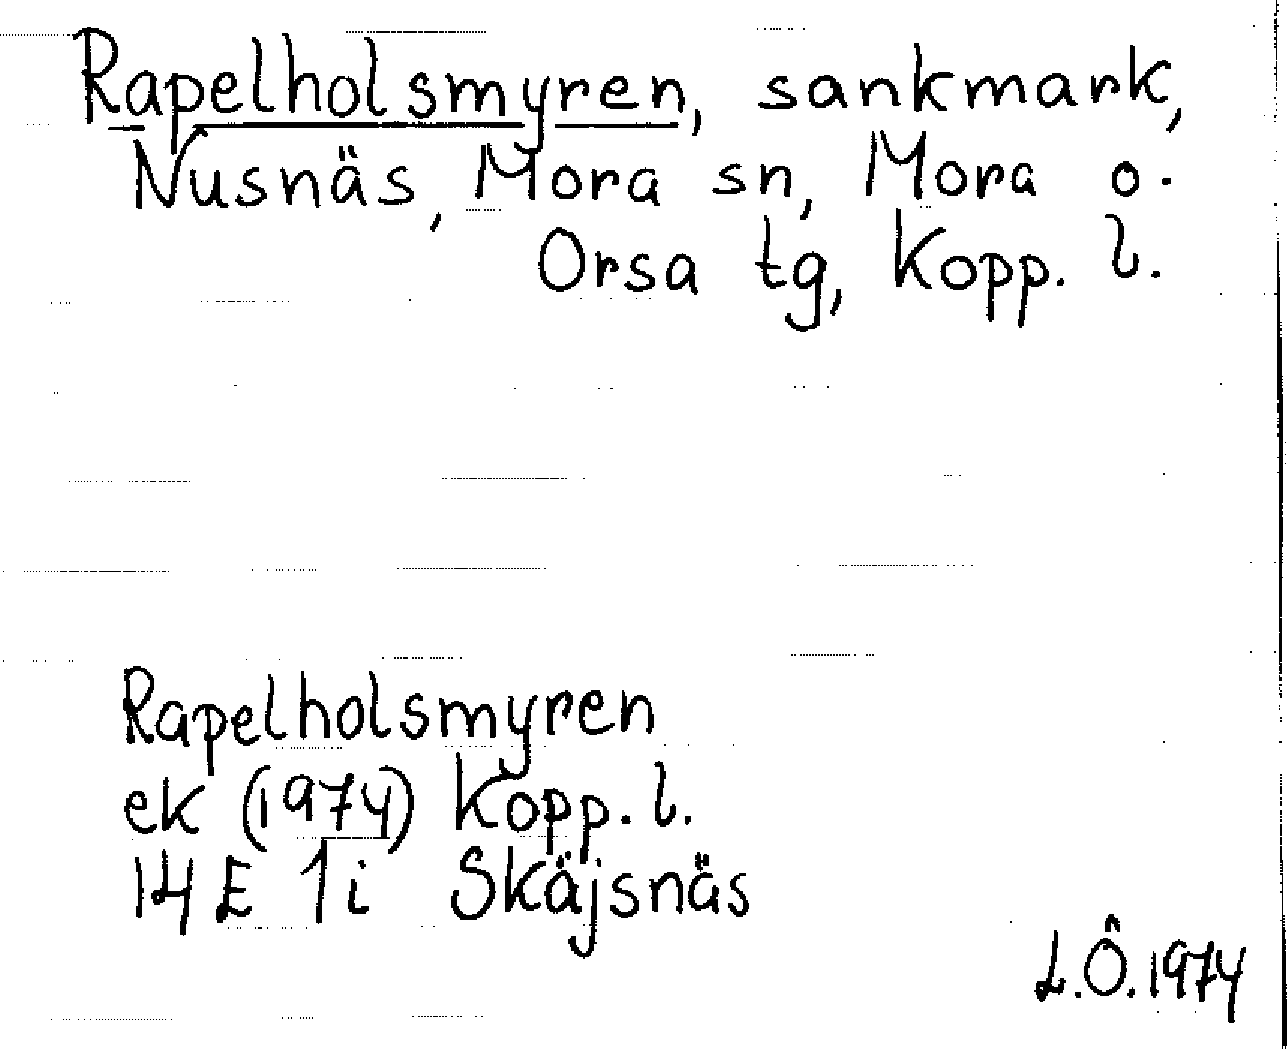 Rapelholsmyren, sankmark,
Nusnäs, Mora sn, Mora o.
Orsa tg, Kopp. l.
Rapelholsmyren
ek (1974) Kopp. l.
14 E 1 i Skäjsnäs
L.Ö. 1974